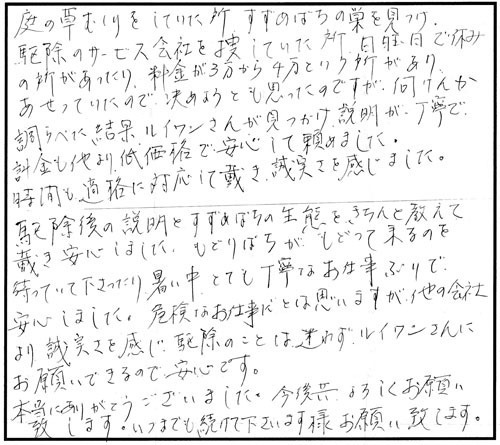 庭の草むしりをしていた所 すずめばちの巣を見つけ、
駆除のサービス会社を捜していた所、日曜日で休み
の所があったり、料金が3万から4万という所があり、
あせっていたので、決めようとも思ったのですが、何けんか
調らべた結果、ルイワンさんが見つかり、説明が、丁寧で、
料金も他より低価格で安心して頼めました。
時間も適格に対応して戴き、誠実さを感じました。
駆除後の説明とすずめばちの生態を、きちんと教えて
戴き安心しました。もどりばちが、もどって来るのを
待っていて下さったり、暑い中、とても丁寧なお仕事ぶりで、
安心しました。危険なお仕事だとは思いますが、他の会社
より誠実さを感じ、駆除のことは迷わず、ルイワンさんに
お願いできるので安心です。
本当にありがとうございました。今後共、よろしくお願い
致します。いつまでも続けて下さいます様お願い致します。